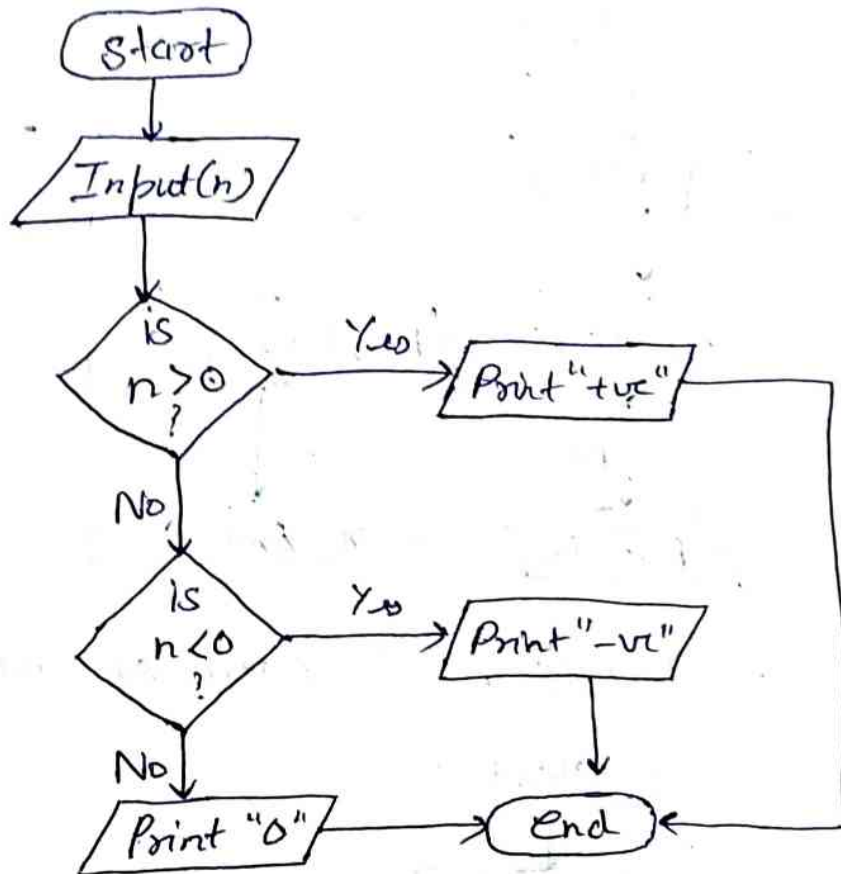 Start
Input(n)
is
n>0
?
Yes
Print "+ve"
No
is
n<0
?
Yes
Print "-ve"
No
Print "0"
end